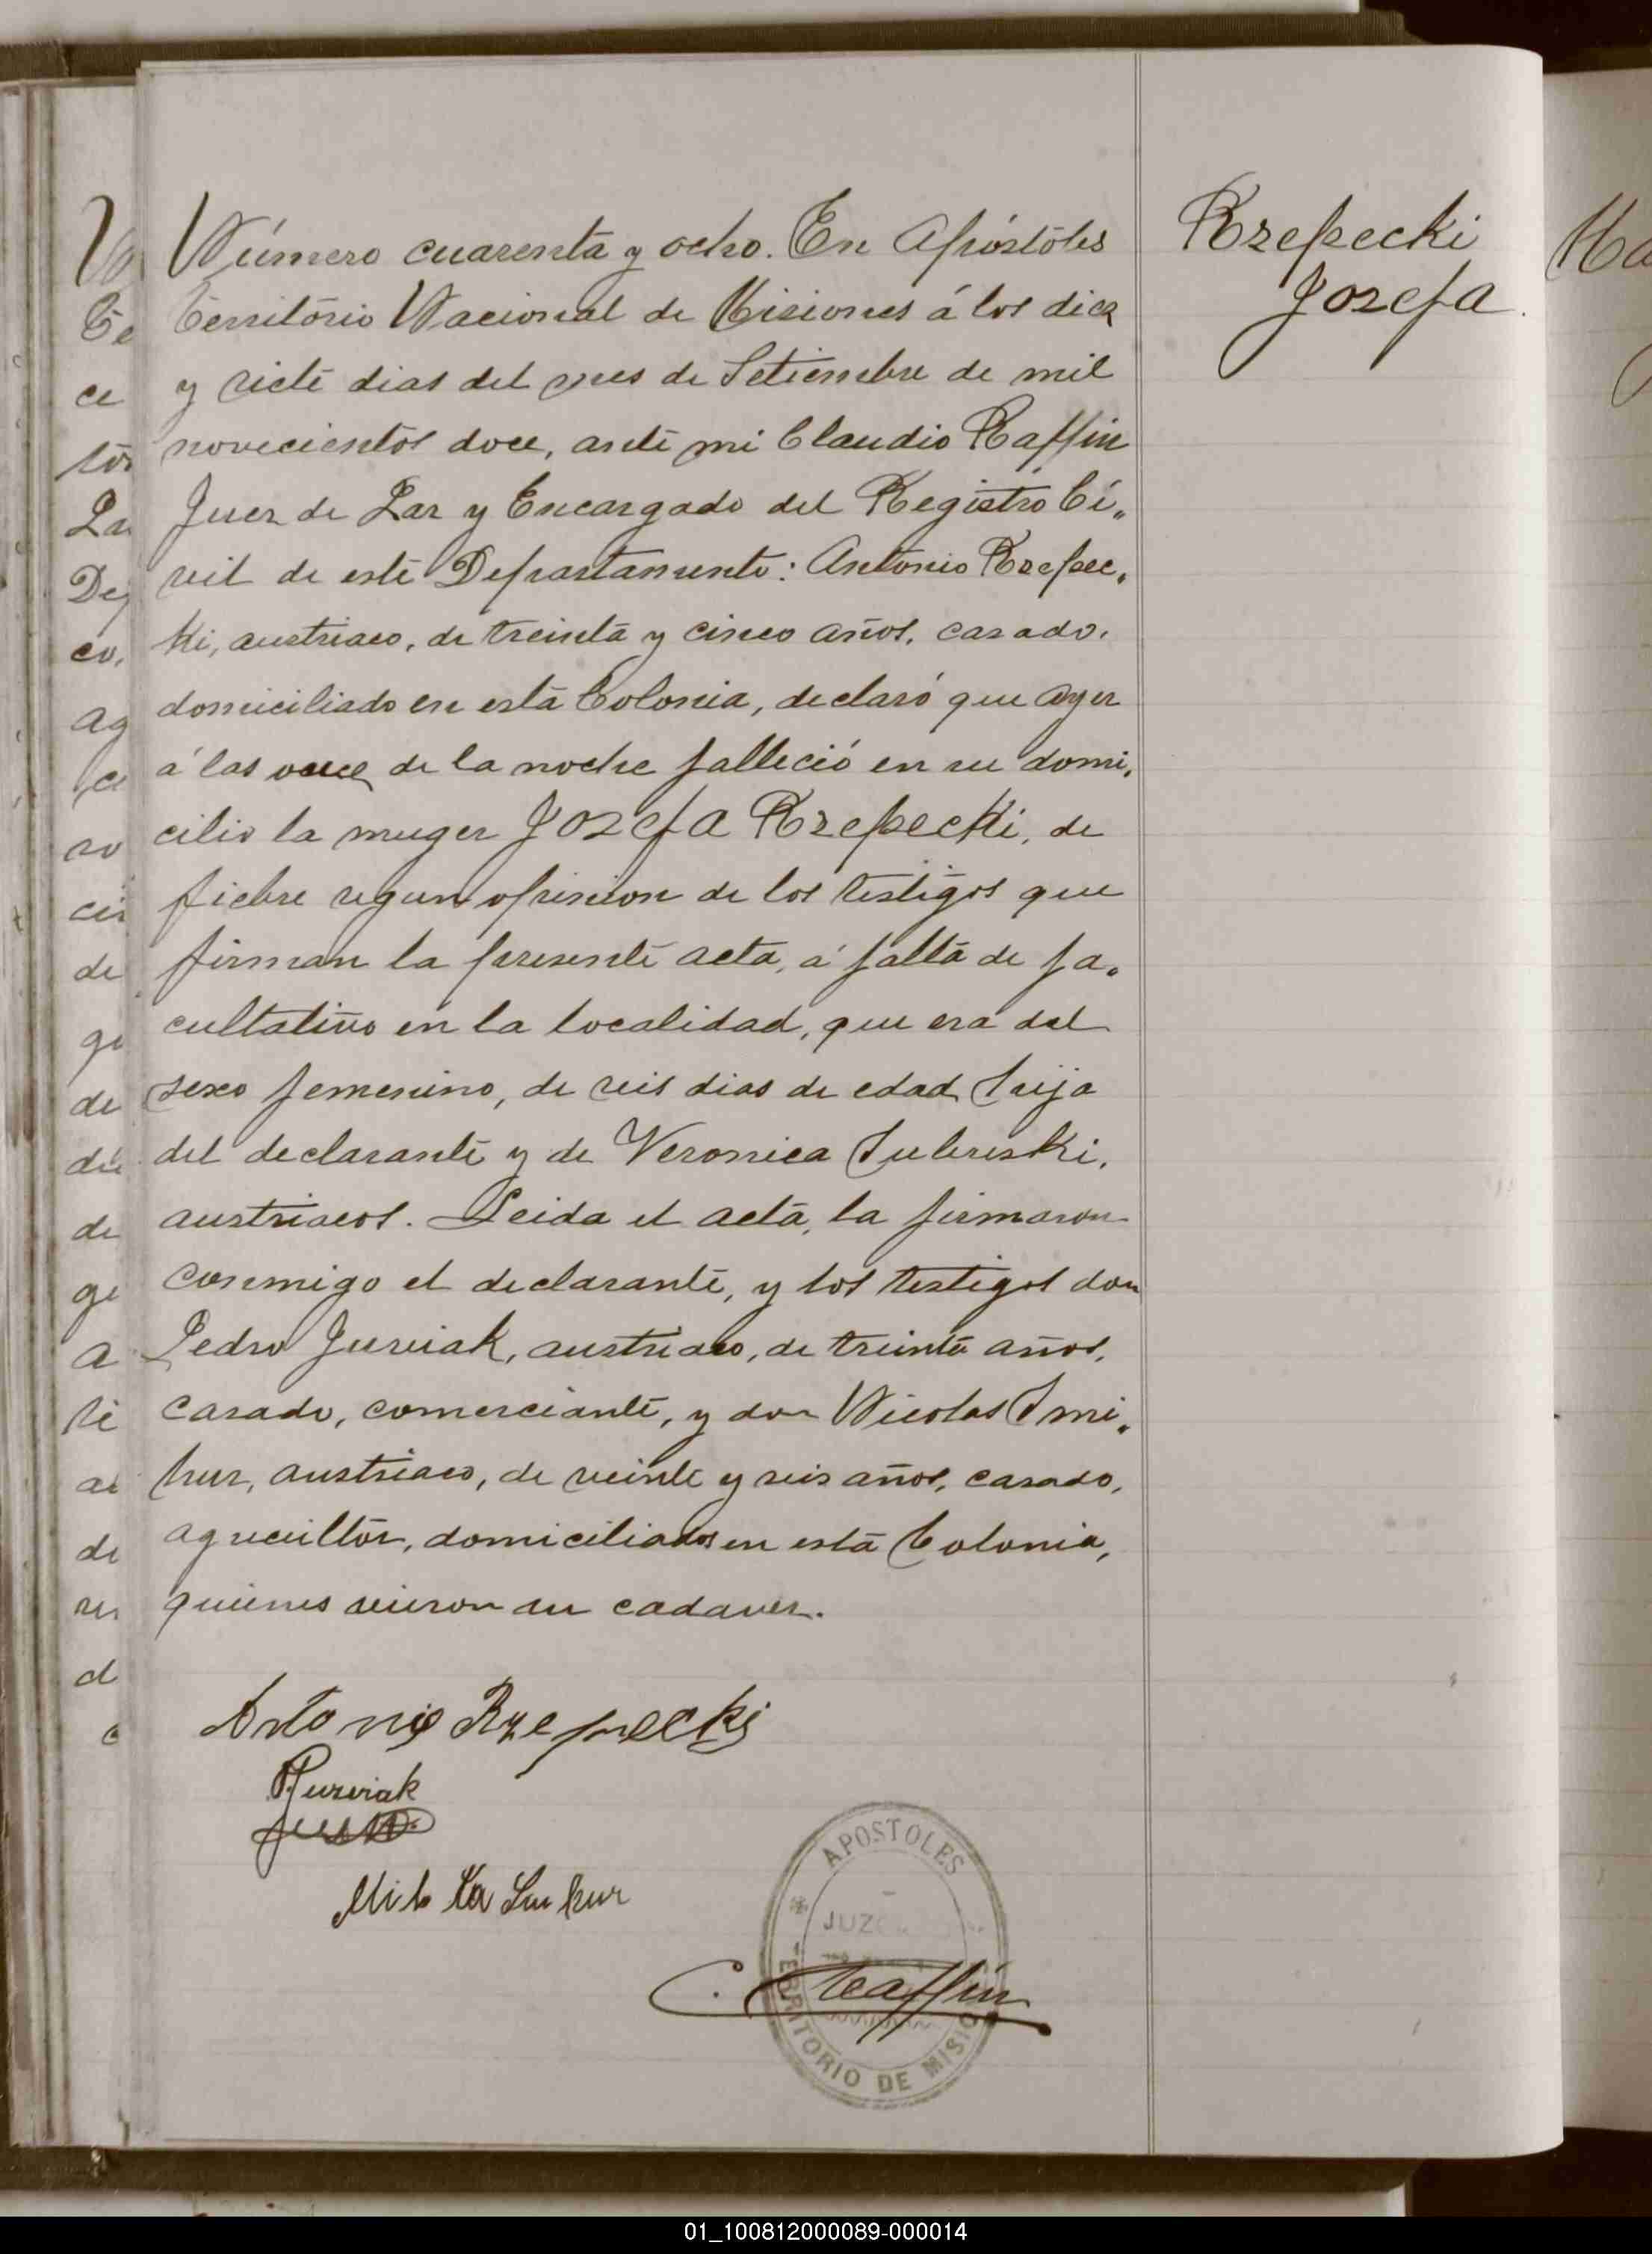 Número cuarenta y ocho. En Apóstoles
Territorio Nacional de Misiones á los diez
y siete dias del mes de Setiembre de mil
novecientos doce, ante mi Claudio Raffin
Juez de Paz y Encargado del Registro Ci„
vil de este Departamento: Antonio Rzepec„
ki, austriaco, de treinta y cinco años, casado,
domiciliado en esta Colonia, declaró que ayer
á las once de la noche falleció en su domi„
cilio la muger Jozefa Rzepecki, de
fiebre segun opinion de los testigos que
firman la presente acta, á falta de fa„
cultativo en la localidad, que era del
sexo femenino, de seis dias de edad, hija
del declarante y de Veronica
austriacos. Leida el acta, la firmaron
conmigo el declarante, y los testigos don
Pedro Jurviak, austriaco, de treinta años,
casado, comerciante, y don Nicolas Smi„
hur, austriaco, de veinte y seis años, casado,
agricultor, domiciliados en esta Colonia,
quienes vieron su cadaver.
Rzepecki
Jozefa.
Antonio Rzepecki
PJurviak
C. Raffin
APOSTOLES
JUZ
TERRITORIO DE MISIO
Nú
Te
ce
tos
Pa
De
co,
ag
ro
de
ge
de
de
ge
a
te
de
d
01_100812000089-000014